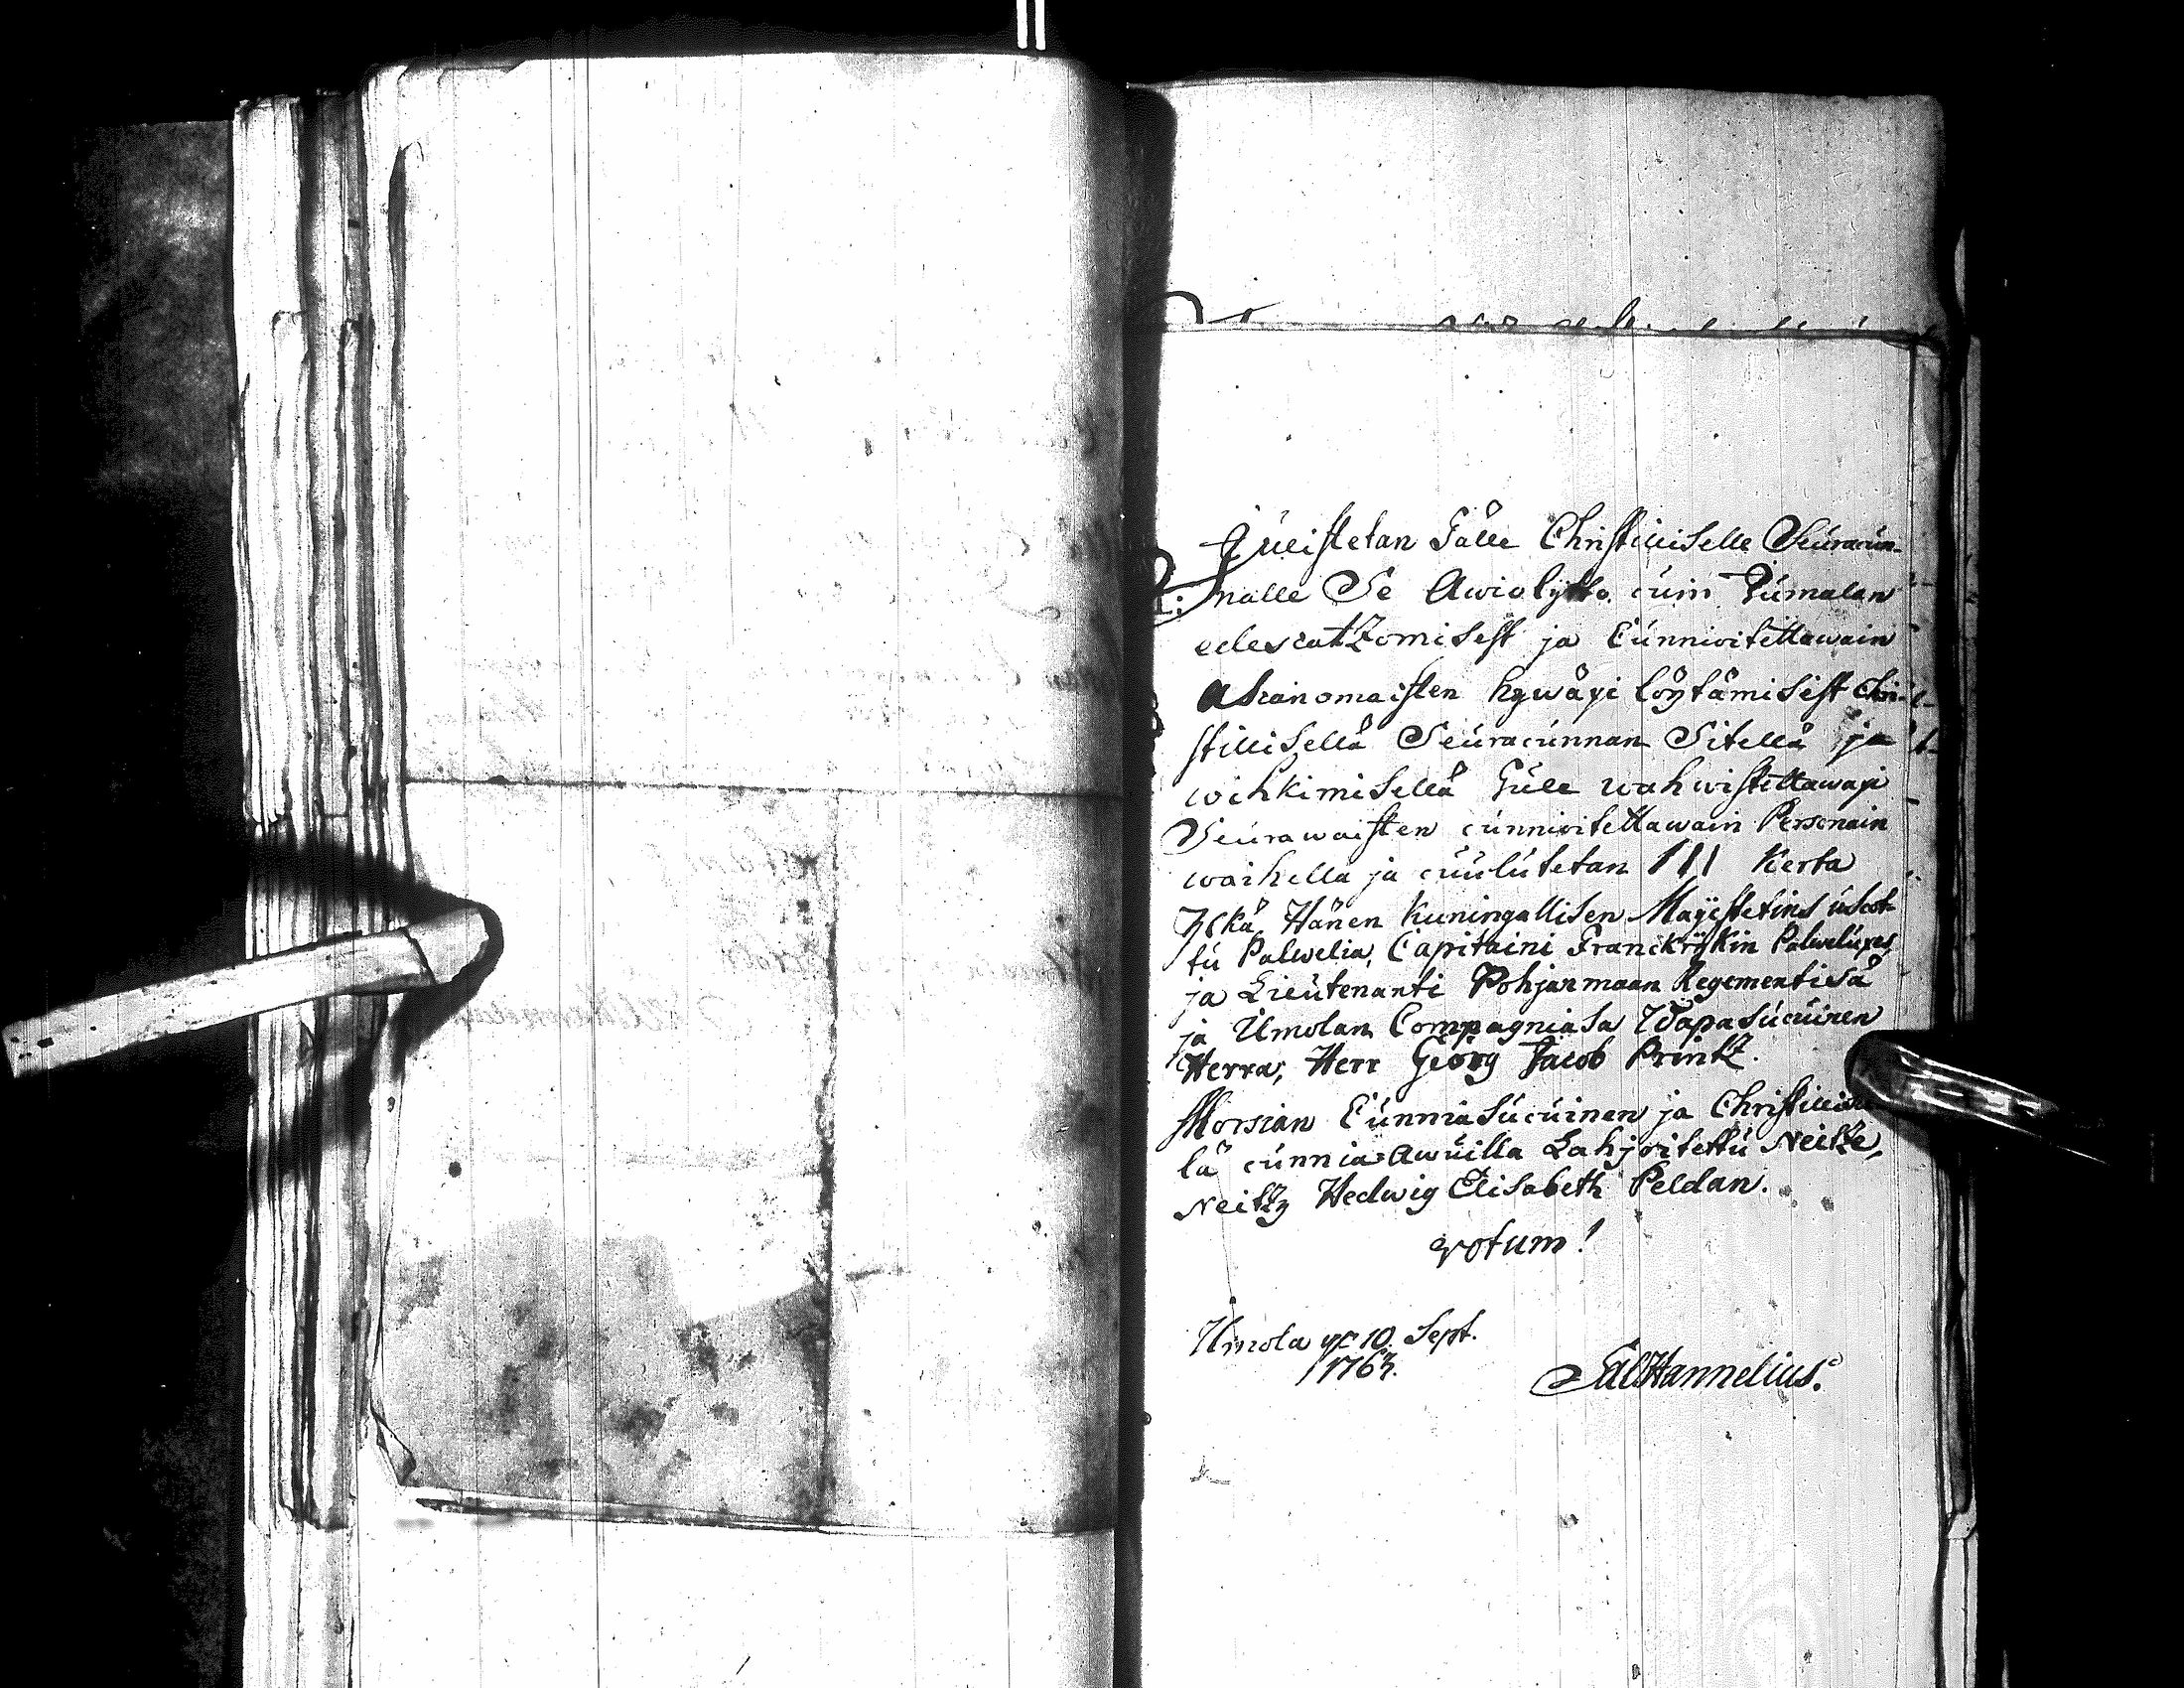 Julistetan Tälle Christilliselle Seuracun-
nalle Se Awiolijtto cuin Jumalan
edescatzomisest ja Cunnioitettawain
Asianomaisten hywäxi löytämisest Chri-
stillisellä Seuracunnan Sitellä ja
wihkimisellä Tulle wahwistettawaxi
Seurawaisten cunnioitettawain Personain
waihella ja cuulutetan III Kerta
Ylkä Hänen Kuningallisen Mayestetins uscot-
tu Palwelia, Capitaini Franckrijkin Palweluxes,
ja Lieutenanti Pohjanmaan Regementisä
ja Ilmolan Compagniasa Wapasucuinen
Herra, Herr Georg Jacob Printz.
Morsian Cunniasucuinen ja Christillisel
lä cunnia-Awuilla Lahjoitettu Neitze,
Neitzy Hedwig Elisabeth Peldan.
Votum!
Ilmola 10. Sept.
1763.
Hannelius.